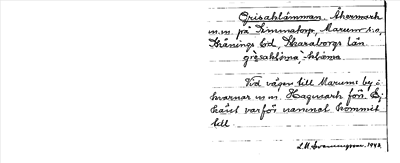 Grisaklämman. Åkermark
m.m. på Simmatorp, Marum s:n,
Skånings hd, Skaraborgs län
Vid vägen till Marums by i
kvarnar m.m. Hagmark förr. Ej
känt varför namnet kommit
till.
L.M. Svenungsson. 1942